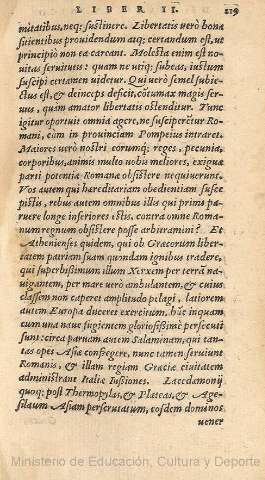 LIBER II. 219
mitatibus, neq; sustinere. Libertatis verò bona
sitientibus prouidendum atq; certandum est, ut
principiò non ea careant. Molesta enim est no-
uitas seruitutis: quam ne utiq; subeas, iustum
suscipi certamen uidetur. Qui verò semel subie-
ctus est, & deinceps deficit, cõtumax magis ser-
uus, quàm amator libertatis ostenditur. Tunc
igitur oportuit omnia agere, ne susciperẽtur Ro-
mani, cùm in prouinciam Pompeius intraret.
Maiores verò nostri eorumq; reges, pecunia,
corporibus, animis multo uobis meliores, exiguæ
parti potentiæ Romanæ obsistere nequiuerunt.
Vos autem qui hæreditariam obedientiam susce
pistis, rebus autem omnibus illis qui primi pa-
ruere longe inferiores estis, contra omne Roma-
num regnum obsistere posse arbitramini? Et
Athenienses quidem, qui ob Græcorum liber-
tatem patriam suam quondam ignibus tradere,
qui superbissimum illum Xerxem per terrã na-
uigantem, per mare verò ambulantem, & cuius
classem non caperet amplitudo pelagi, latiorem
autem Europa duceret exercitum, hũc inquam
cum una naue fugientem gloriosissimè persecuti
sunt: circa paruam autem Salaminam, qui tan-
tas opes Asiæ confegere, nunc tamen seruiunt
Romanis, & illam regiam Græciæ ciuitatem
administrant Italiæ Iussiones. Lacedæmonij
quoq; post Thermopylas, & Plateas, & Age-
silaum Asiam perscrutatum, eosdem dominos
uener
Ministerio de Educación, Cultura y Deporte